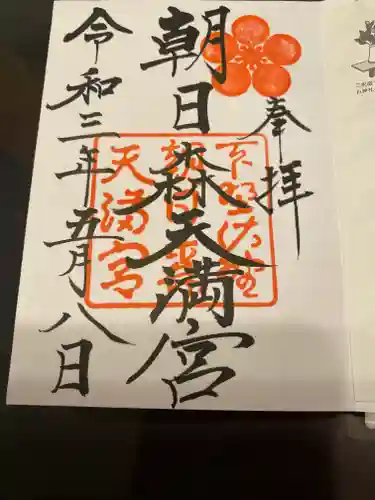 奉拝
朝日森天満宮
令和三年五月八日
下野佐野
朝日森
天満宮